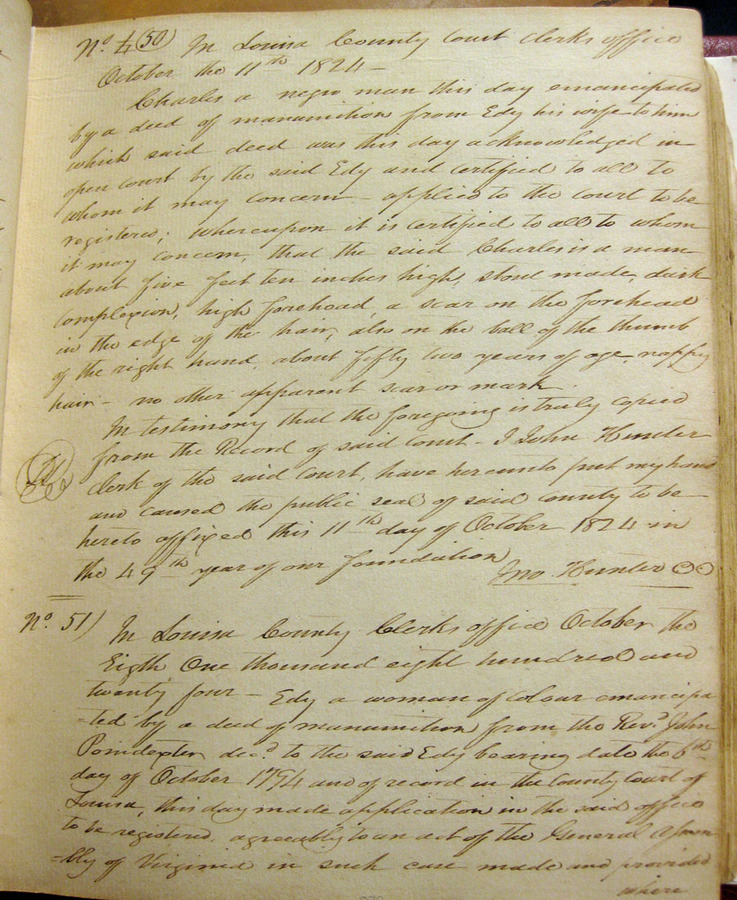 No. (50) In Louisa County Court Clerks office
October the 11th 1824 —
Charles a negro man this day emancipated
by a deed of manumition from Edy his wife to him
which said deed was this day acknowledged in
open court by the said Edy and certified to all to
whom it may concern — applied to the court to be
registered; whereupon it is certified to all to whom
it may concern, that the said Charles is a man
about five feet ten inches high, stout made, dark
complexion, high forehead, a scar on the forehead
in the edge of the hair, also on the ball of the thumb
of the right hand, about fifty two years of age, nappy
hair — no other apparent scar or mark.
In testimony that the foregoing is truly copied
from the Record of said Court — I John Hunter
clerk of the said Court, have hereunto put my hand
and caused the public seal of said county to be
hereto affixed this 11th day of October 1824 in
the 49th year of our foundation
Jno. Hunter CC
No. 51) In Louisa County Clerks office October the
Eighth One thousand eight hundred and
twenty four — Edy a woman of colour emancipa
-ted by a deed of manumition from the Revd. John
Poindexter decd. to the said Edy bearing date the 6th
day of October 1794 and of record in the County Court of
Louisa, this day made application in the said office
to be registered, agreeably to an act of the General Assem
-bly of Virginia in such case made and provided
where